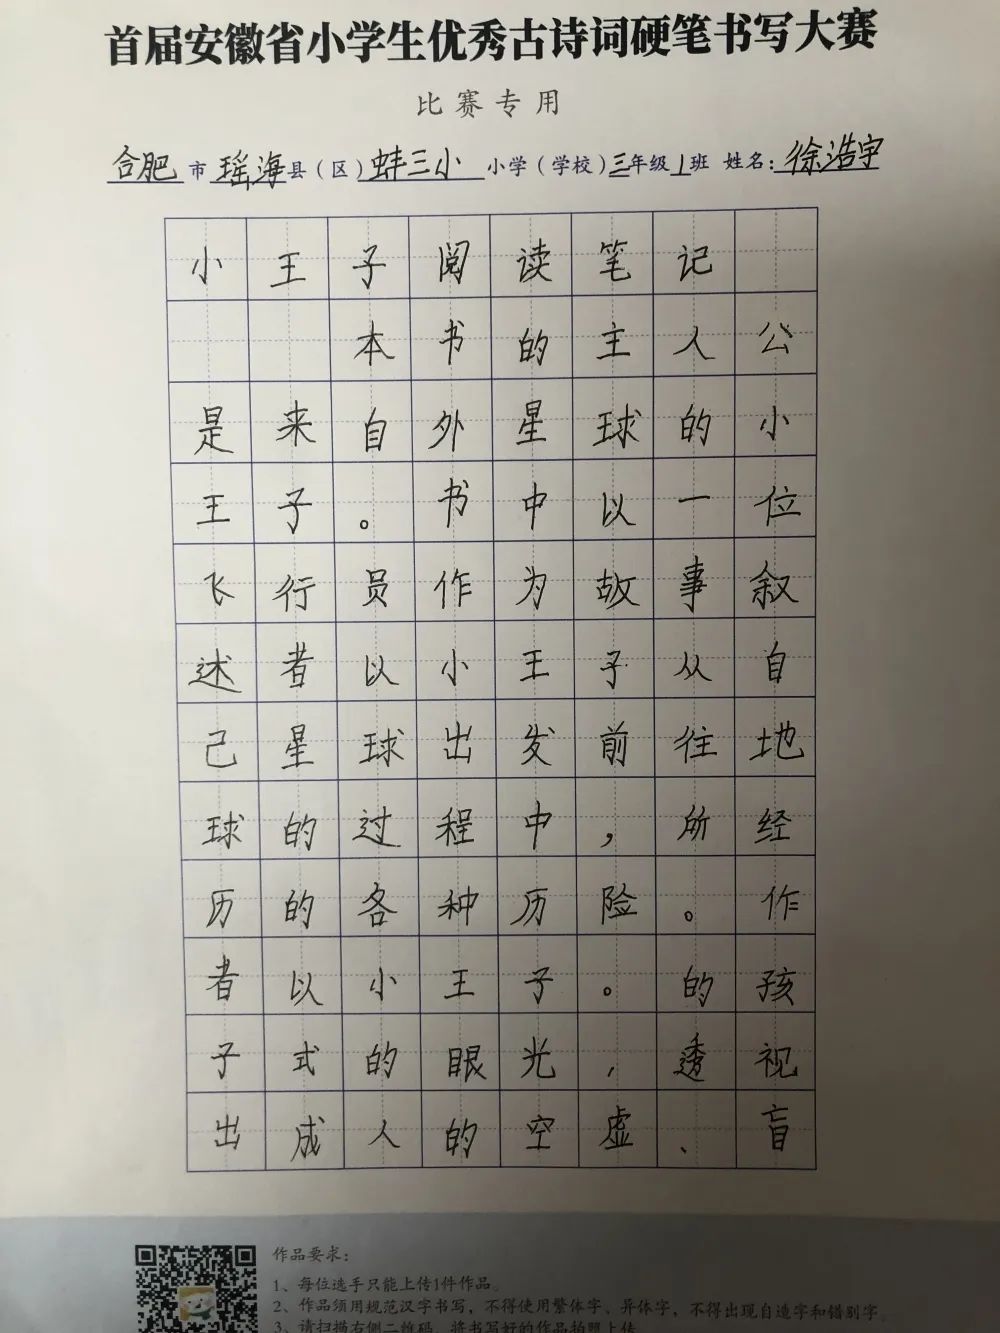 首届安徽省小学生优秀古诗词硬笔书写大赛
比赛专用
合肥市瑶海县（区）蚌三小小学（学校）三年级1班 姓名：徐浩宇
小王子阅读笔记
本书的主人公
是来自外星球的小
王子。书中以一位
飞行员作为故事叙
述者以小王子从自
己星球出发前往地
球的过程中，所经
历的各种历险。作
者以小王子。的孩
子式的眼光，透视
出成人的空虚、盲
作品要求：
1、每位选手只能上传1件作品。
2、作品须用规范汉字书写，不得使用繁体字、异体字，不得出现自造字和错别字。
3、请扫描右侧二维码，将书写好的作品拍照上传